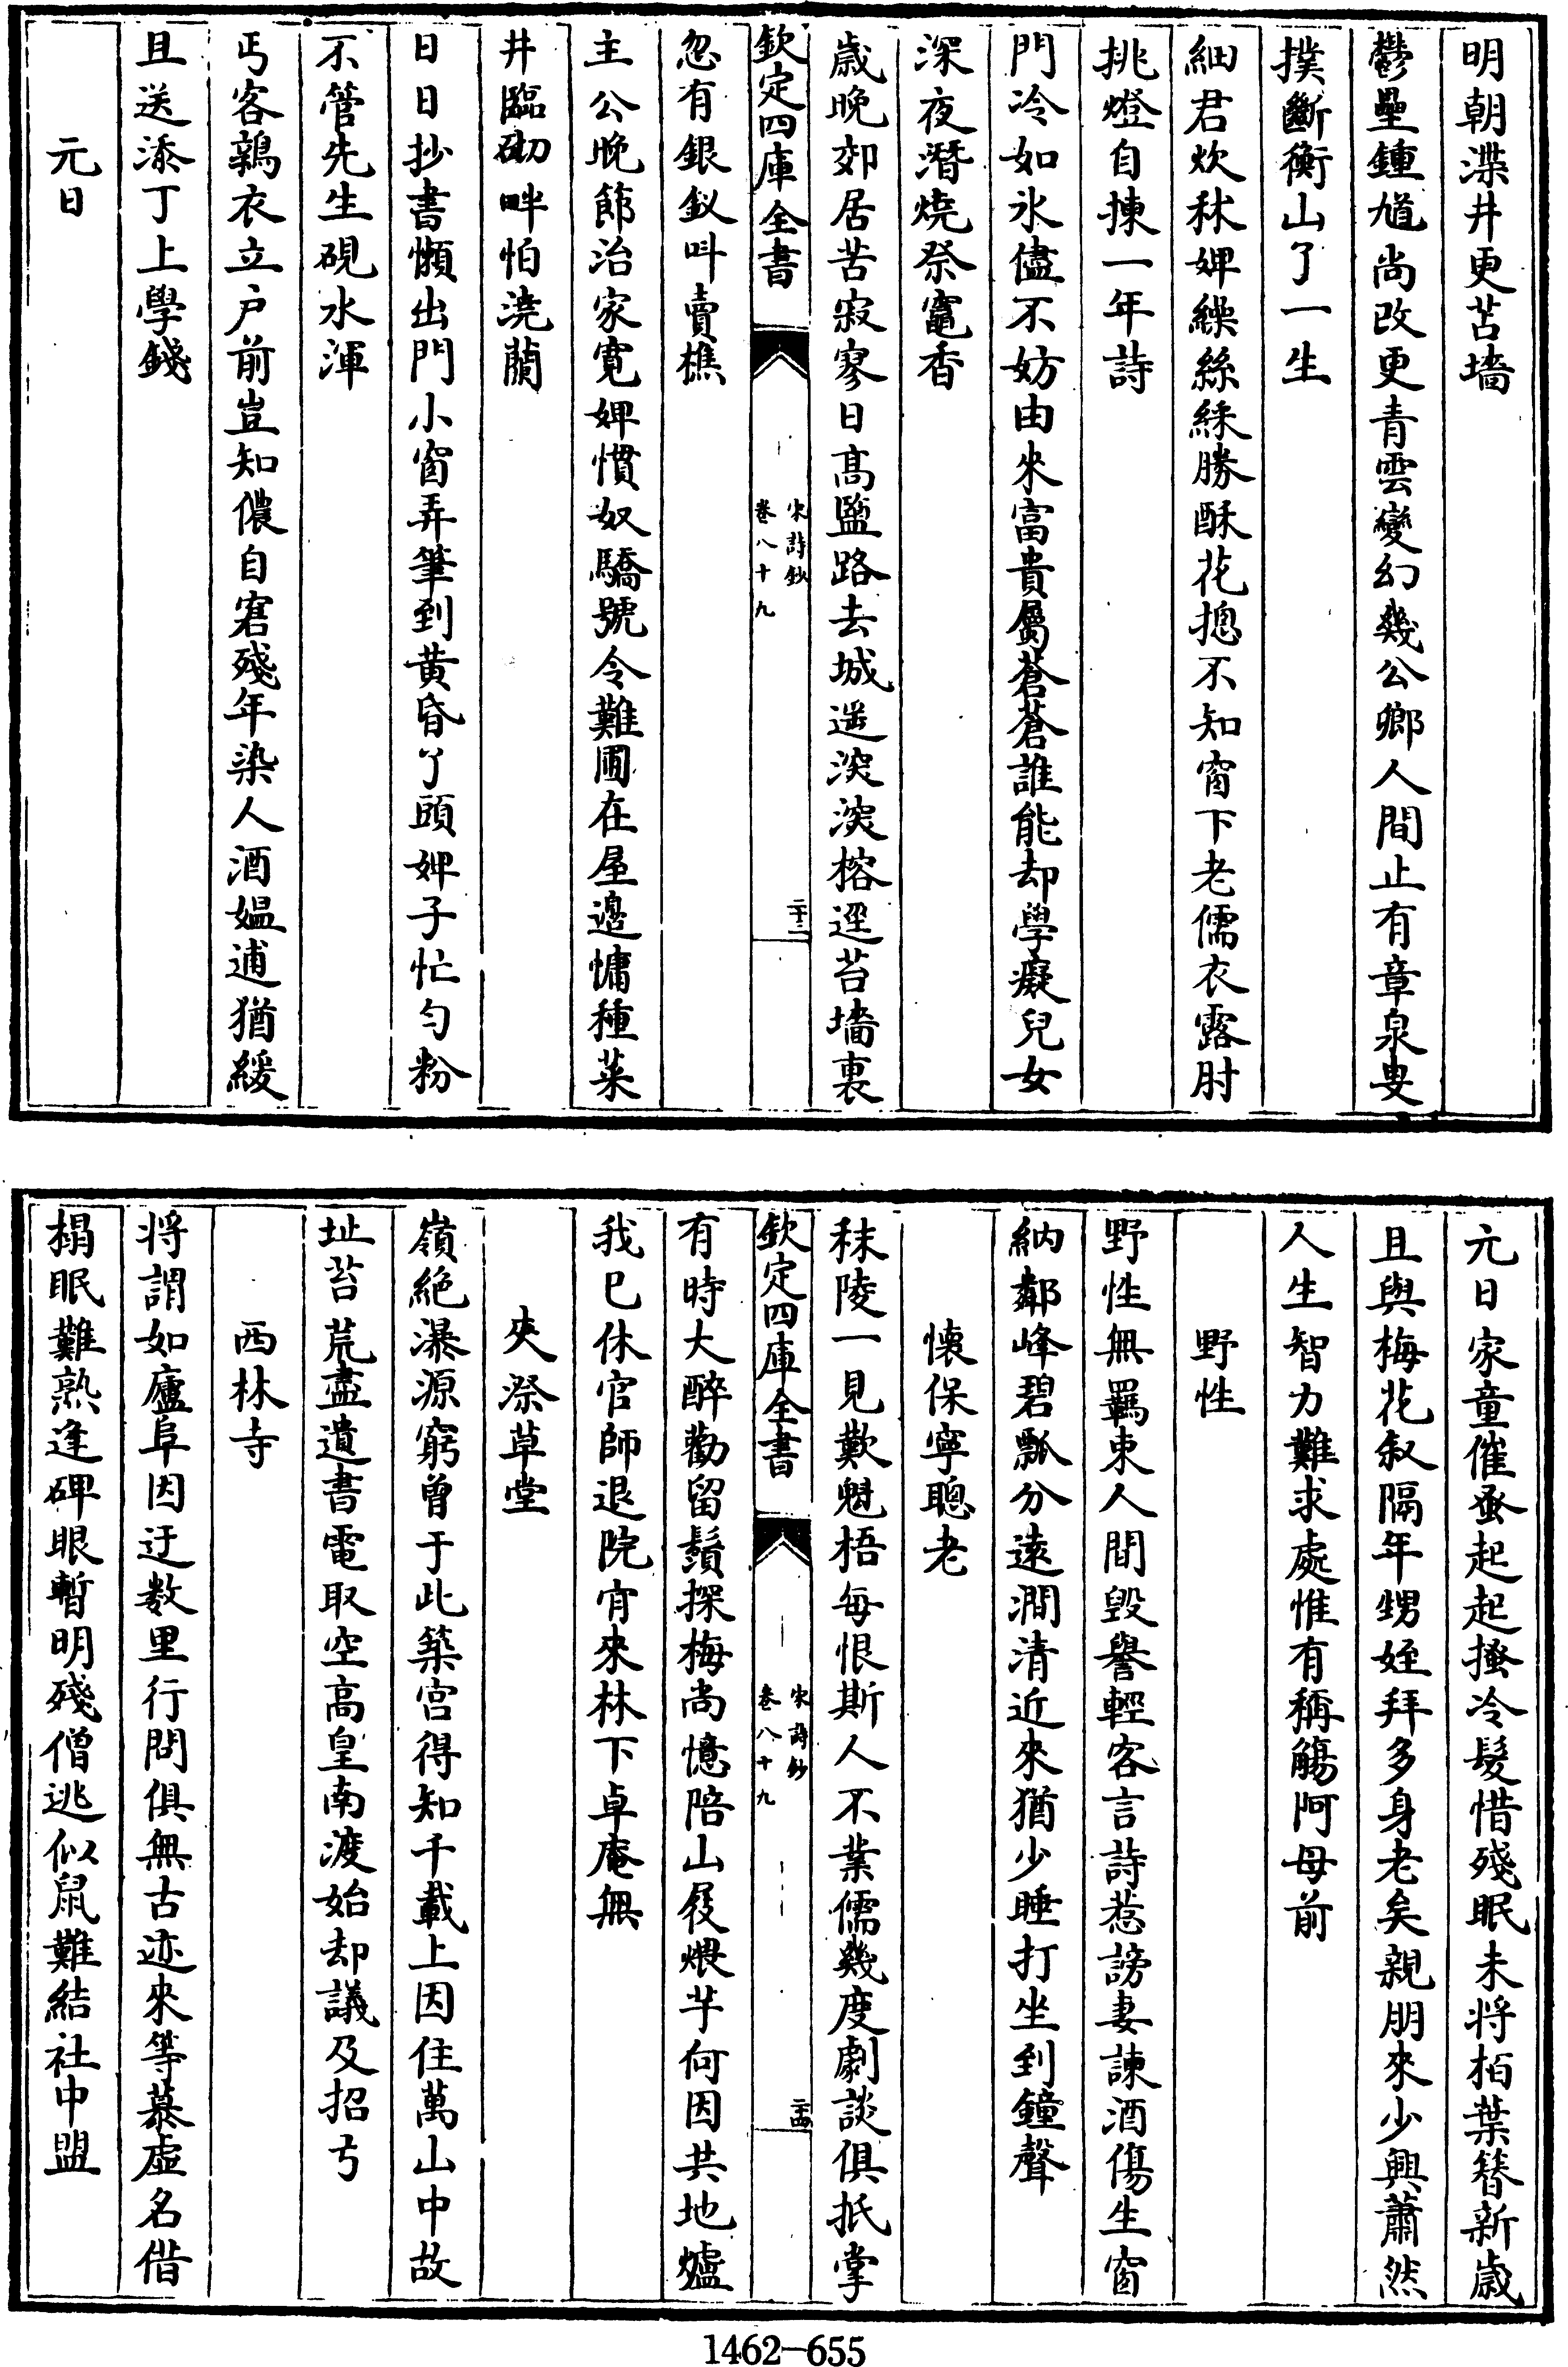 明朝渫井更苫墻
鬱壘鍾馗尚改更青雲變幻幾公鄉人間止有章泉叟
撲斷衡山了一生
細君炊秫婢繰絲綵勝酥花摠不知窗下老儒衣露肘
挑燈自揀一年詩
門冷如氷儘不妨由來富貴屬蒼蒼誰能却學癡兒女
深夜潛燒祭竈香
歲晚郊居苦寂寥日高鹽路去城遥淡淡榕逕苔墻裏
欽定四庫全書
宋詩鈔
卷八十九
二十三
忽有銀釵叫賣樵
主公晚節治家寬婢慣奴驕號令難圃在屋邊慵種菜
井臨砌畔怕澆蘭
日日抄書懶出門小窗弄筆到黄昏丫頭婢子忙勻粉
不管先生硯水渾
丐客鶉衣立户前豈知儂自窘殘年染人酒媪逋猶緩
且送添丁上學錢
元日
元日家童催蚤起起搔冷髮惜殘眠未將栢葉簪新歲
且與梅花叙隔年甥姪拜多身老矣親朋來少興蕭然
人生智力難求處惟有稱觴阿母前
野性
野性無羈束人間毁譽輕客言詩惹謗妻諫酒傷生窗
納鄰峰碧瓢分遠澗清近來猶少睡打坐到鐘聲
懷保寧聰老
秣陵一見歎魁梧每恨斯人不業儒幾度劇談俱抵掌
欽定四庫全書
宋詩鈔
卷八十九
二十四
有時大醉勸留鬚探梅尚憶陪山屐煨芋何因共地爐
我已休官師退院肯來林下卓庵無
夾漈草堂
嶺絶瀑源窮曾于此築宫得知千載上因住萬山中故
址苔荒盡遺書電取空高皇南渡始却議及招弓
西林寺
將謂如廬阜因迂数里行問俱無古迹來等慕虚名借
榻眠難熟逢碑眼暫明殘僧逃似鼠難結社中盟
1462-655